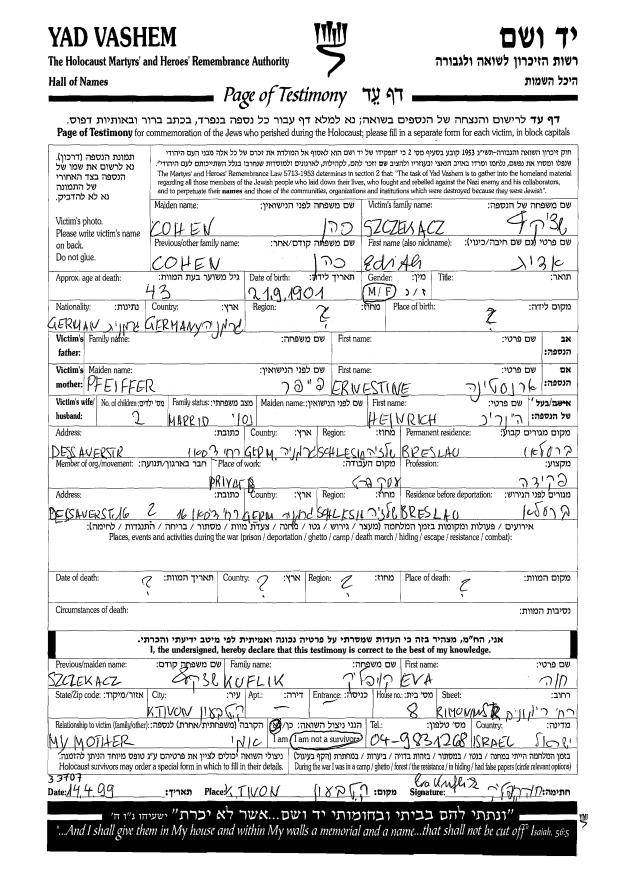 YAD VASHEM
יד ושם
The Holocaust Martyrs' and Heroes' Remembrance Authority
רשות הזיכרון לשואה ולגבורה
Hall of Names
היכל השמות
Page of Testimony דף עד
דף עד לרישום והנצחה של הנספים בשואה; נא למלא דף עבור כל נספה בנפרד, בכתב ברור ובאותיות דפוס.
Page of Testimony for commemoration of the Jews who perished during the Holocaust; please fill in a separate form for each victim, in block capitals
The Martyrs' and Heroes' Remembrance Law 5713-1953 determines in section 2 that: "The task of Yad Vashem is to gather into the homeland material
regarding all those members of the Jewish people who laid down their lives, who fought and rebelled against the Nazi enemy and his collaborators,
and to perpetuate their names and those of the communities, organizations and institutions which were destroyed because they were Jewish."
תמונת הנספה (דרכון).
נא לרשום את שמו של
הנספה בצד האחורי
של התמונה
נא לא להדביק.
Victim's photo.
Please write victim's name
on back.
Do not glue.
Maiden name: שם משפחה לפני הנישואין: Victim's family name: שם משפחה של הנספה:
COHEN כהן SZCZEKACZ
Previous/other family name: שם משפחה קודם/אחר: First name (also nickname): שם פרטי (גם שם חיבה/כינוי):
COHEN כהן
Approx. age at death: גיל משוער בעת המוות: Date of birth: תאריך לידה: Gender: מין: Title: תואר:
43 21.9.1901 M / F ז / נ
Nationality: נתינות: Country: ארץ: Region: מחוז: Place of birth: מקום לידה:
GERMAN גרמניה GERMANY גרמניה ? ?
Victim's father: Family name: שם משפחה: First name: שם פרטי: אב הנספה:
Victim's mother: Maiden name: שם לפני הנישואין: First name: שם פרטי: אם הנספה:
PFEIFFER פייפר ERNESTINE ארנסטינה
Victim's wife/ husband: No. of children: מס' ילדים: Family status: מצב משפחתי: Maiden name: שם לפני הנישואין: First name: שם פרטי: אישה/בעל של הנספה:
2 MARRID נשוי HEINRICH היינריך
Address: כתובת: Country: ארץ: Region: מחוז: Permanent residence: מקום מגורים קבוע:
DESSAUERSTR GERM. גרמניה SCHLESIA שלזיה BRESLAU ברסלאו
Member of org./movement: חבר בארגון/תנועה: Place of work: מקום העבודה: Profession: מקצוע:
Address: כתובת: Country: ארץ: Region: מחוז: Residence before deportation: מגורים לפני הגירוש:
DESSAUERST. 16 GERM גרמניה שלזיה BRESLAU ברסלאו
אירועים / פעולות ומקומות בזמן המלחמה (מעצר / גירוש / גטו / מחנה / צעדת מוות / מסתור / בריחה / התנגדות / לחימה):
Places, events and activities during the war (prison / deportation / ghetto / camp / death march / hiding / escape / resistance / combat):
Date of death: תאריך המוות: Country: ארץ: Region: מחוז: Place of death: מקום המוות:
? ? ? ?
Circumstances of death: נסיבות המוות:
אני, הח"מ, מצהיר בזה כי העדות שמסרתי על פרטיה נכונה ואמיתית לפי מיטב ידיעתי והכרתי.
I, the undersigned, hereby declare that this testimony is correct to the best of my knowledge.
Previous/maiden name: שם משפחה קודם: Family name: שם משפחה: First name: שם פרטי:
SZCZEKACZ KUFLIK קופליק EVA חוה
State/Zip code: אזור/מיקוד: City: עיר: Apt.: דירה: Entrance: כניסה: House no.: מס' בית: Street: רחוב:
K.TIVON – – 8 רח' רימונים
Relationship to victim (family/other): הקרבה (משפחתית/אחרת) לנספה: I am / I am not a survivor הנני ניצול השואה: כן/לא Tel.: מס' טלפון: Country: מדינה:
MY MOTHER אמי 04-9831268 ISRAEL ישראל
ניצולי השואה יכולים לציין את פרטיהם ע"ג טופס מיוחד הניתן להזמנה.
Holocaust survivors may order a special form in which to fill in their details.
בזמן המלחמה הייתי במחנה / בגטו / במסתור / בזהות בדויה / ביערות / במחתרת (הקף בעיגול)
During the war I was in a camp / ghetto / forest / the resistance / in hiding / had false papers (circle relevant options)
33707
Date: 14.4.99 תאריך: Place: K.TIVON מקום: Signature: Eva Kuflik חתימה:
"ונתתי להם בביתי ובחומותי יד ושם...אשר לא יכרת" ישעיהו נ"ו ה'
"...And I shall give them in My house and within My walls a memorial and a name...that shall not be cut off" Isaiah, 56:5